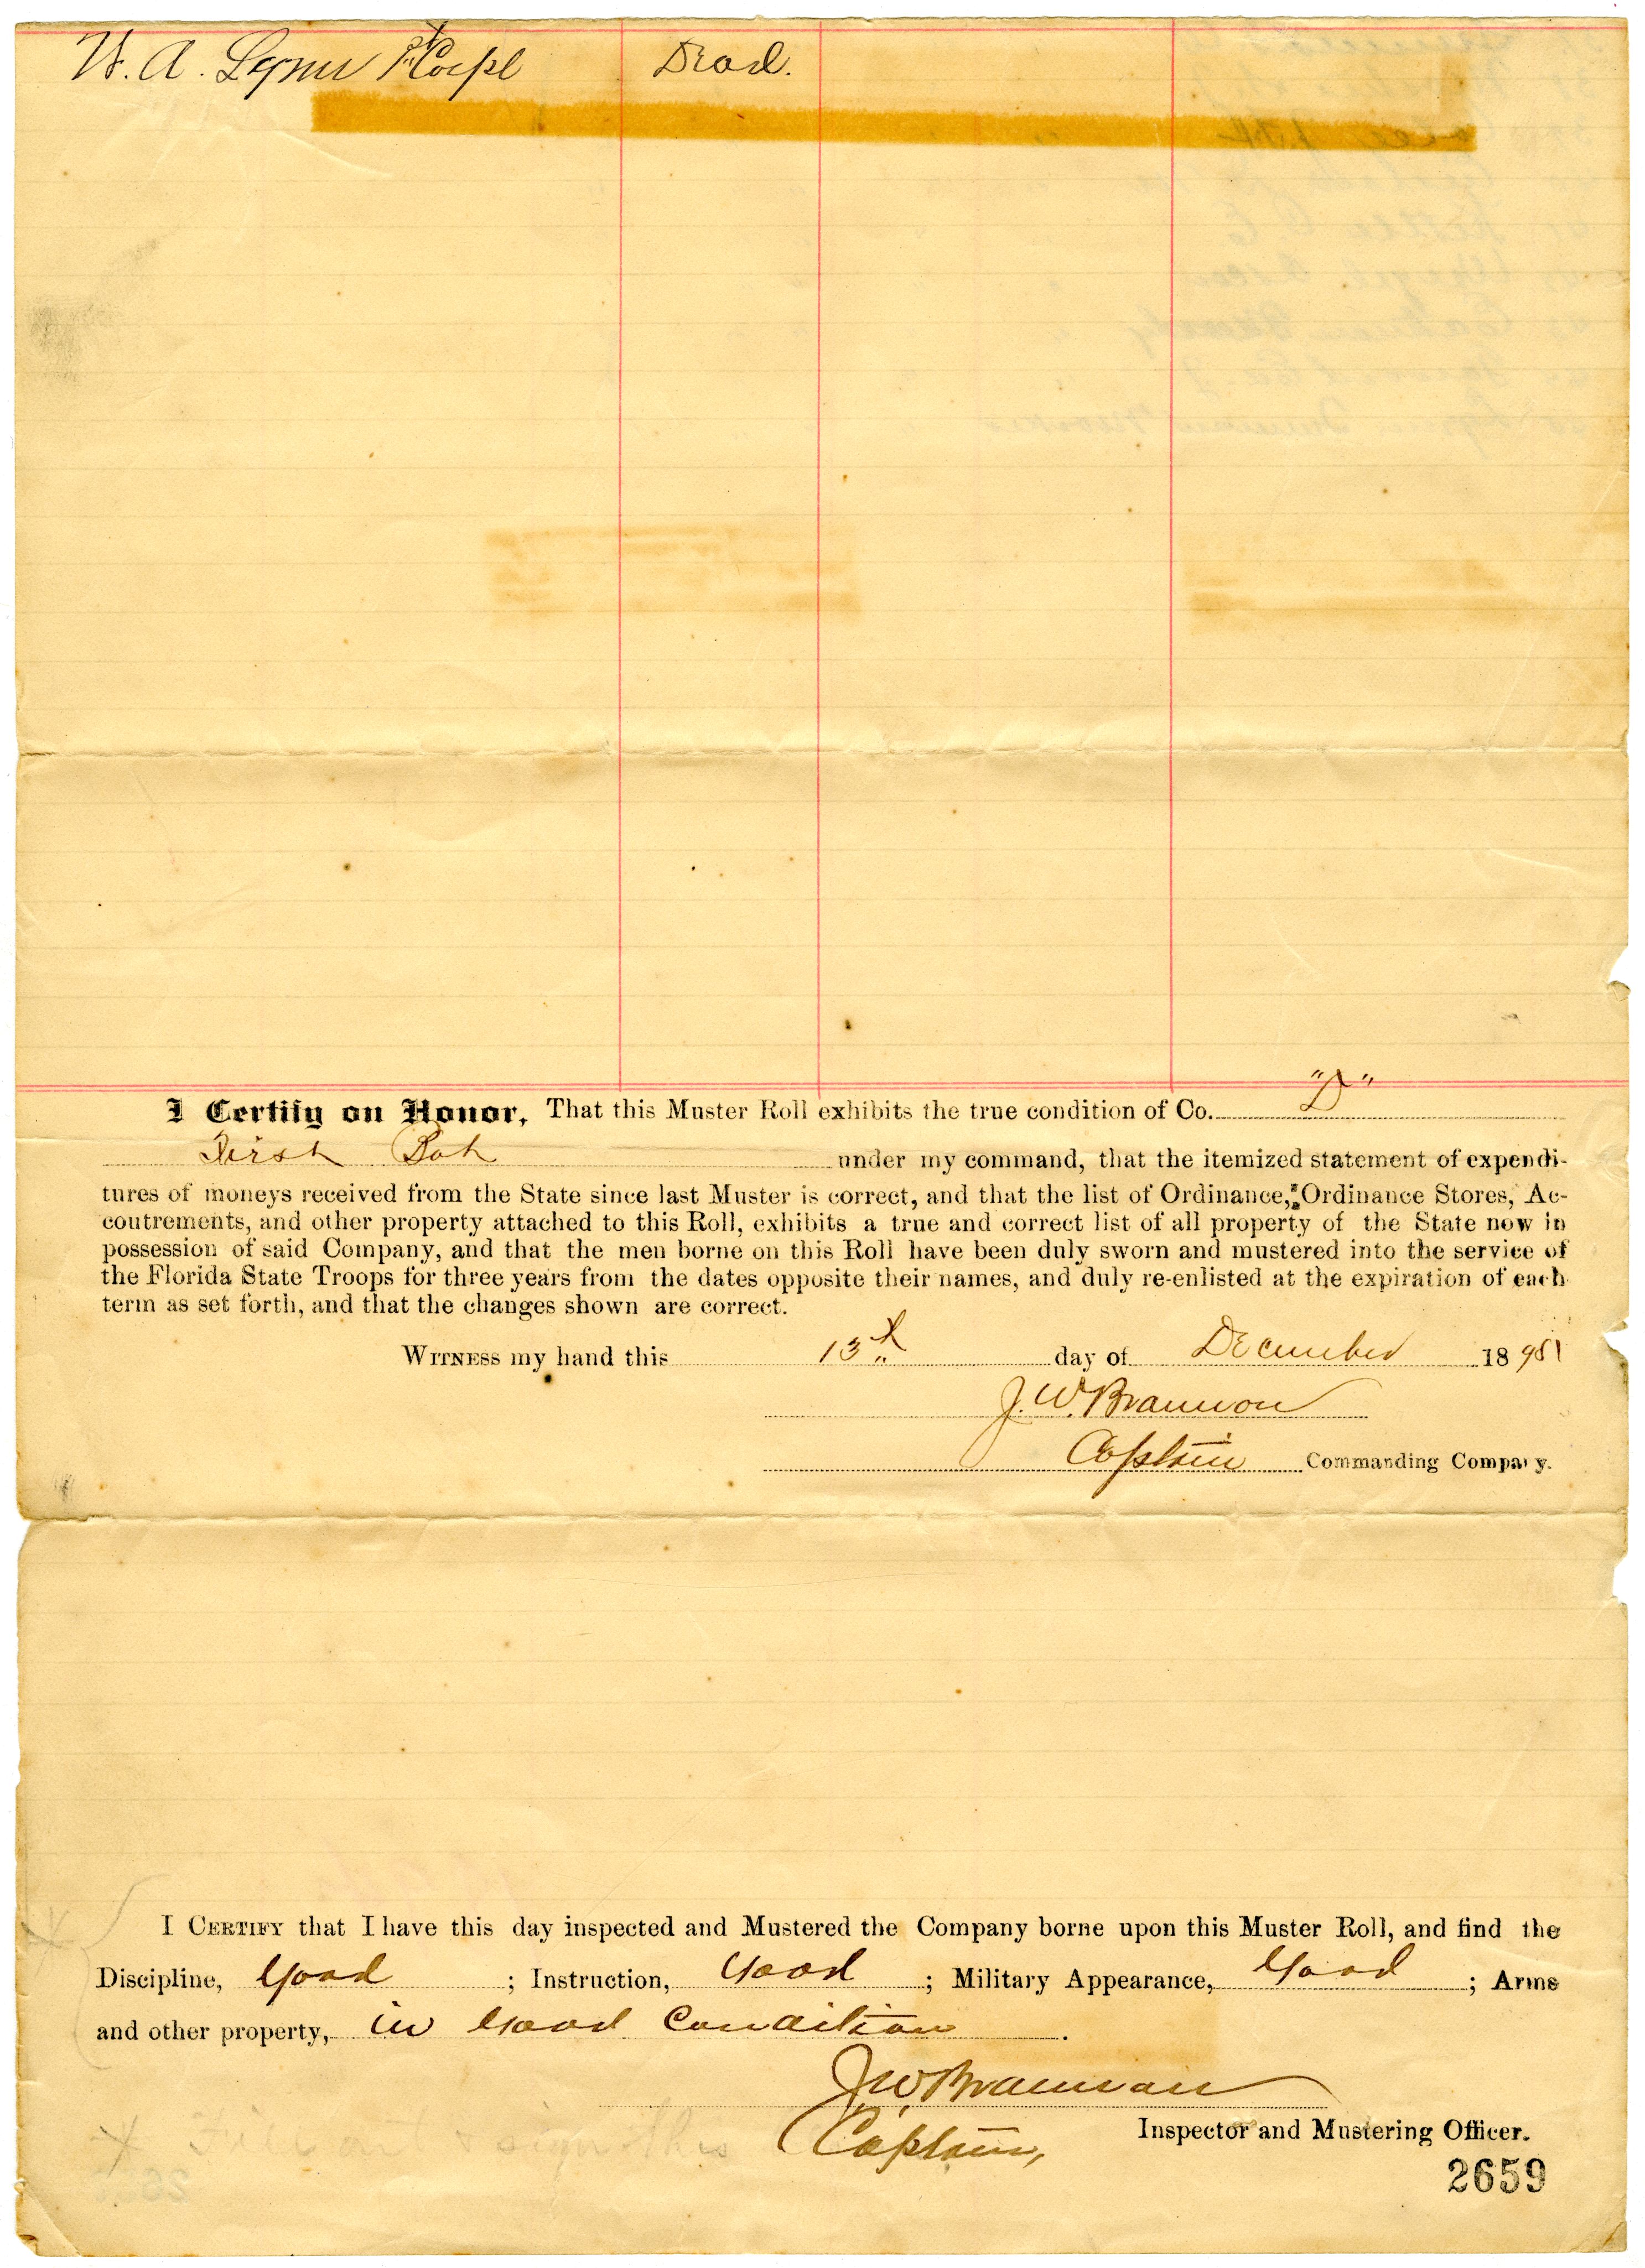 W. A. Lynn Corpl Dead.
I Certify on Honor, That this Muster Roll exhibits the true condition of Co. "D"
First Bat under my command, that the itemized statement of expendi-
tures of moneys received from the State since last Muster is correct, and that the list of Ordinance, Ordinance Stores, Ac-
coutrements, and other property attached to this Roll, exhibits a true and correct list of all property of the State now in
possession of said Company, and that the men borne on this Roll have been duly sworn and mustered into the service of
the Florida State Troops for three years from the dates opposite their names, and duly re-enlisted at the expiration of each
term as set forth, and that the changes shown are correct.
WITNESS my hand this 13th day of December 189
J. W. Brannon
Captain Commanding Company.
I CERTIFY that I have this day inspected and Mustered the Company borne upon this Muster Roll, and find the
Discipline, Good ; Instruction, Good ; Military Appearance, Good ; Arms
and other property, in Good Condition .
J W Brannon
Captain, Inspector and Mustering Officer.
* Fill out & sign this
2659